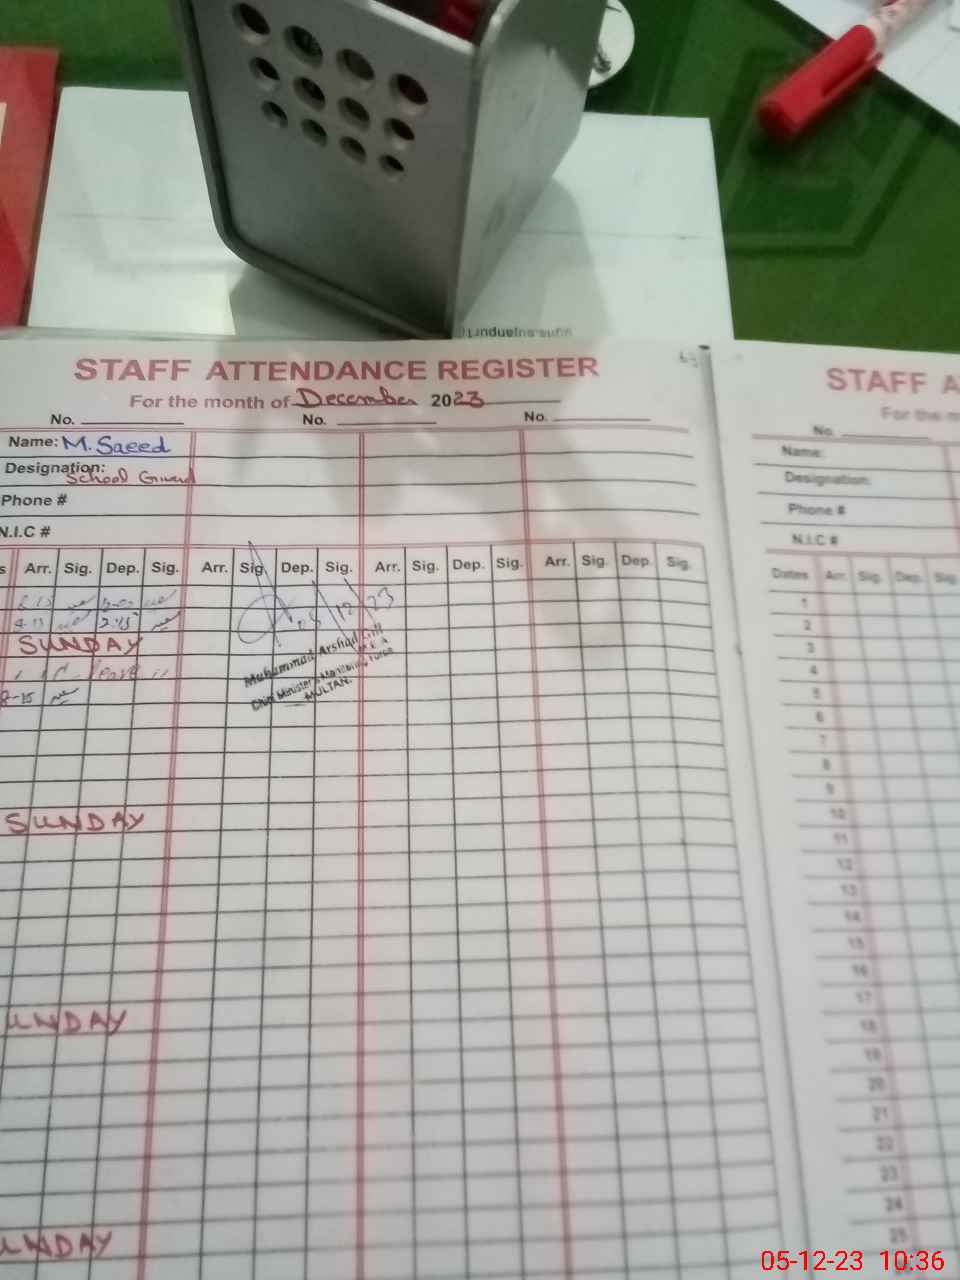 STAFF ATTENDANCE REGISTER
For the month of December 2023
No. No. No.
Name: M. Saeed
Designation: School Guard
Phone #
N.I.C #
s Arr. Sig. Dep. Sig. Arr. Sig. Dep. Sig. Arr. Sig. Dep. Sig. Arr. Sig. Dep. Sig.
2:45
SUNDAY
8-15
05/12/23
Muhammad Arshad
M.E.A
Chief Minister's Monitoring Force
MULTAN.
SUNDAY
UNDAY
UNDAY
STAFF A
For the m
No.
Name:
Designation:
Phone #
N.I.C #
Dates Arr. Sig. Dep. Sig.
1
2
3
4
5
6
7
8
9
10
11
12
13
14
15
16
17
18
19
20
21
22
23
24
25
05-12-23 10:36